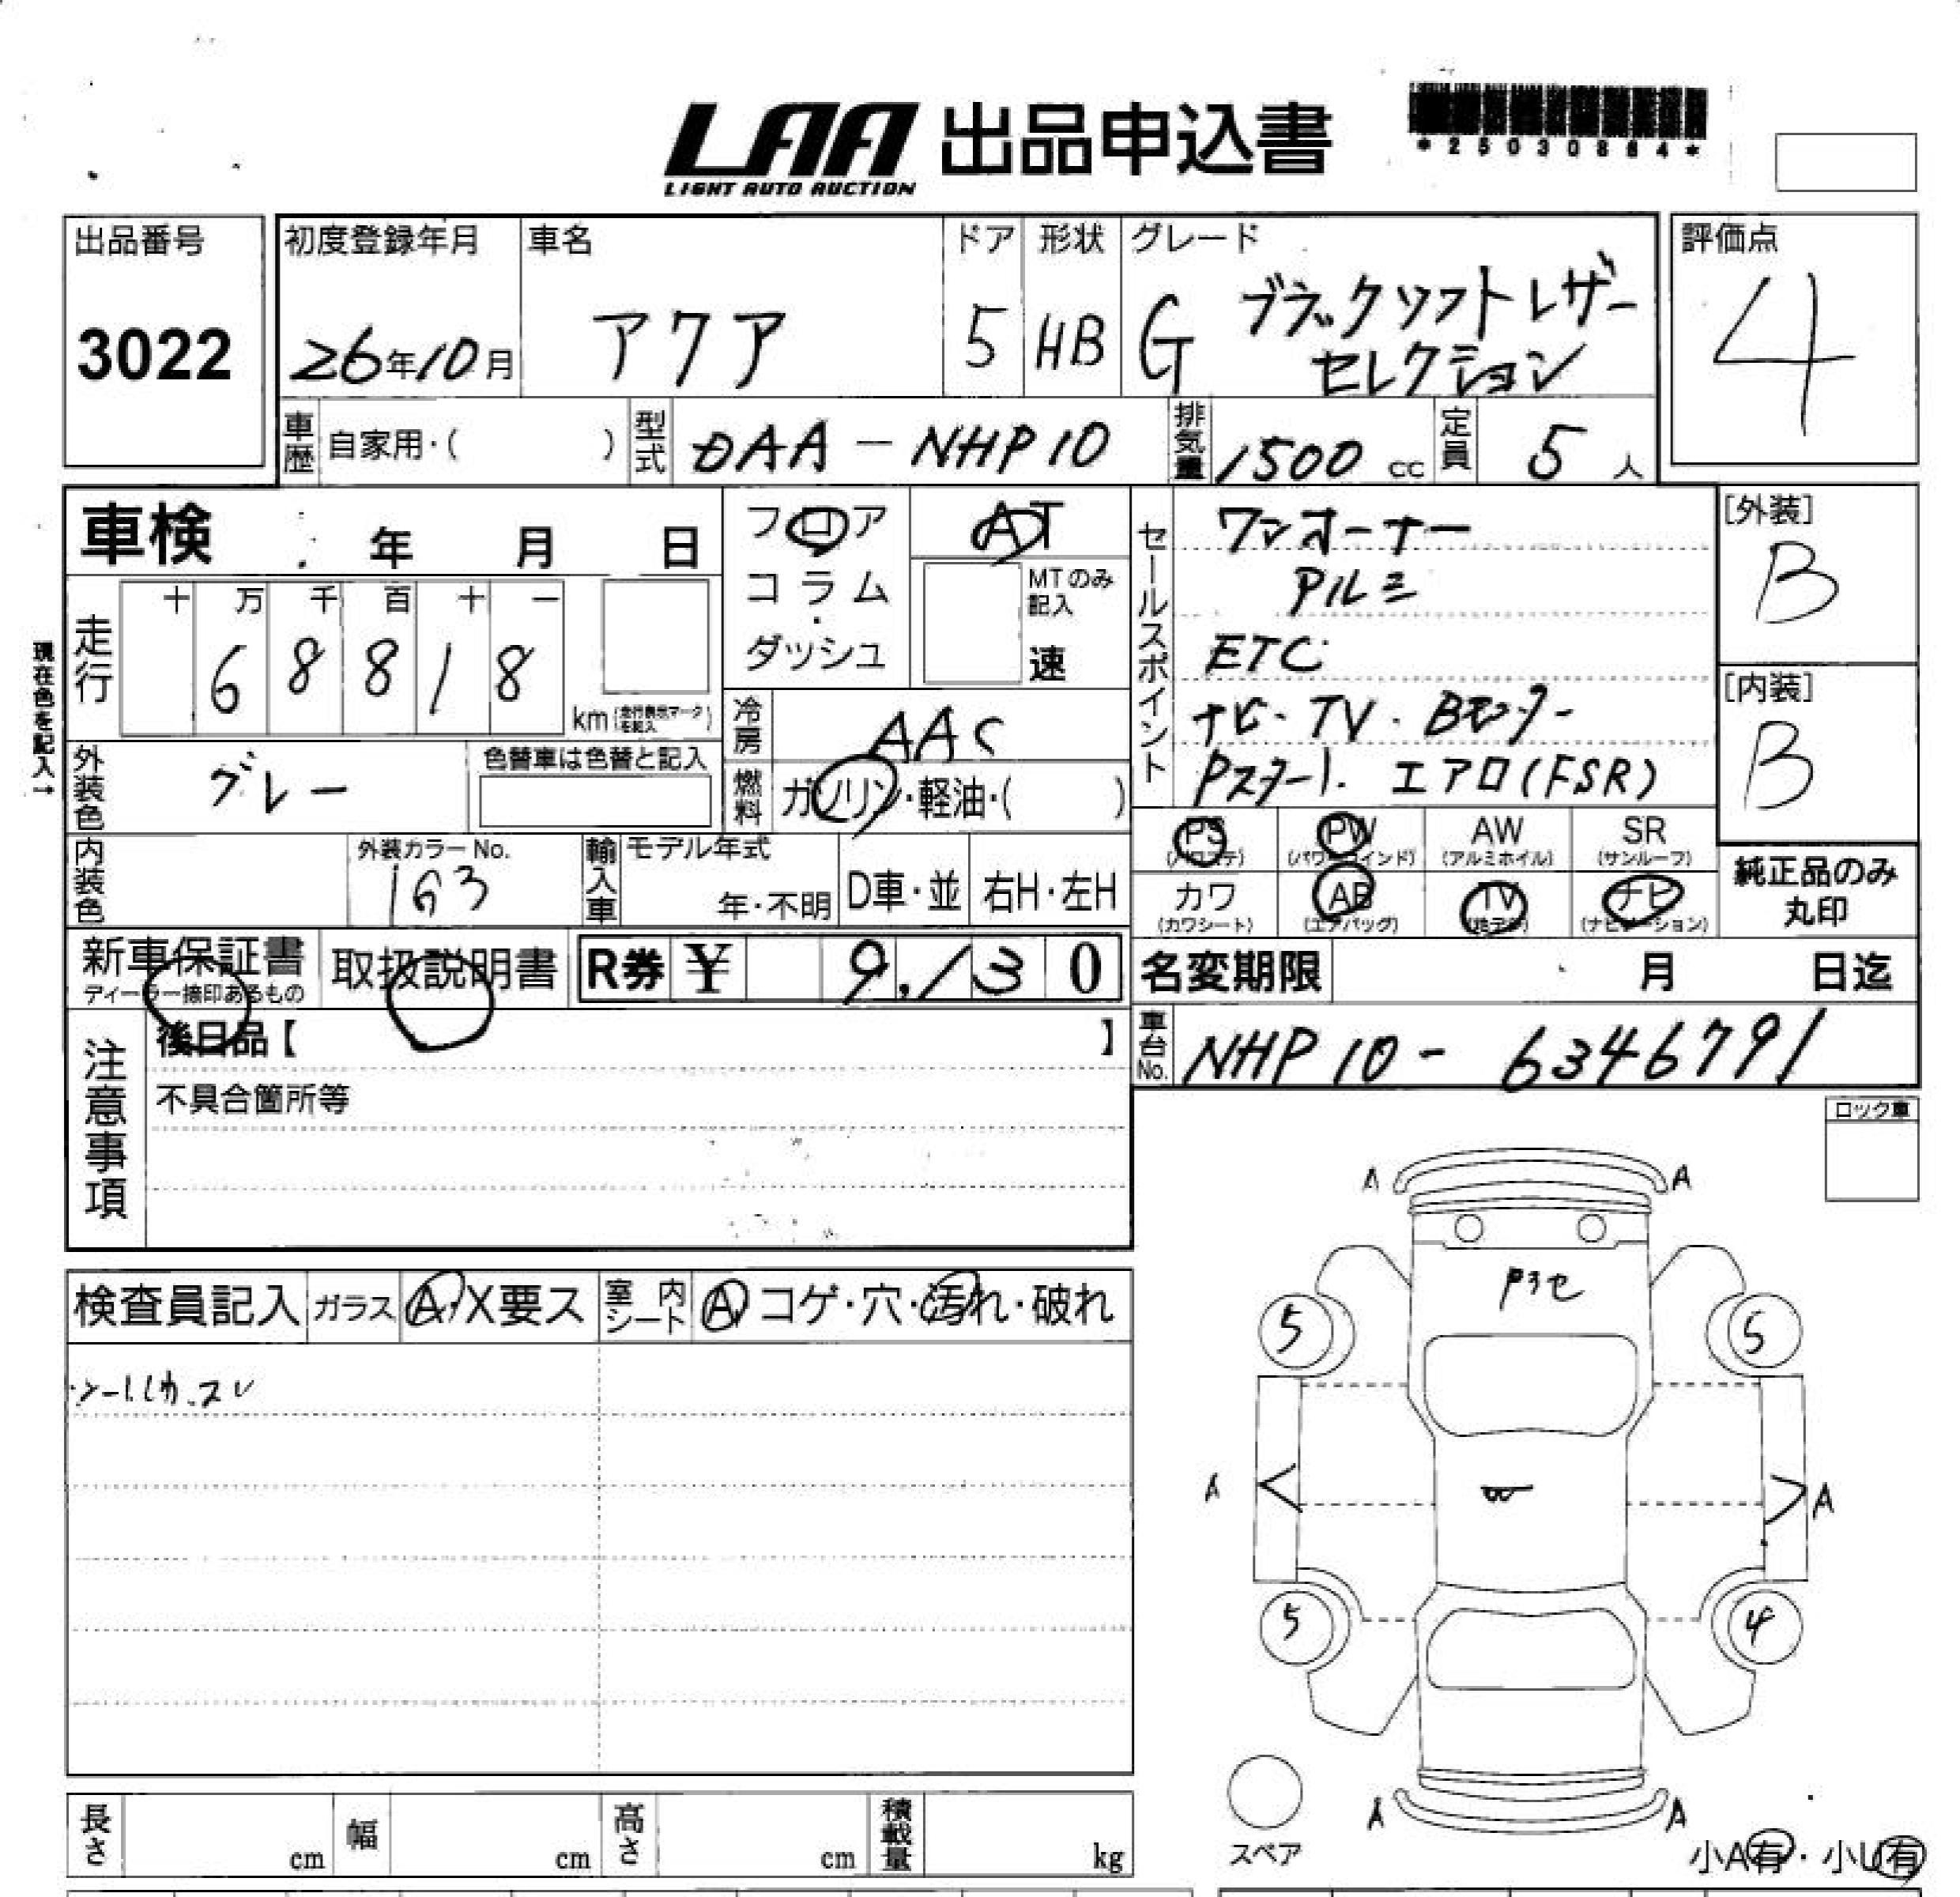 LAA 出品申込書
LIGHT AUTO AUCTION
*25030884*
出品番号
3022
初度登録年月
26年10月
車名
アクア
ドア
5
形状
HB
グレード
G ブラックソフトレザー
セレクション
評価点
4
車歴 自家用・( )
型式 DAA-NHP10
排気量 1500 cc
定員 5 人
車検 年 月 日
走行
十 万 千 百 十 一
6 8 8 1 8
km (走行表示マークを記入)
現在色を記入→
外装色 グレー
色替車は色替と記入
内装色
外装カラーNo.
1G3
フロア
コラム
・
ダッシュ
AT
MTのみ記入
速
冷房 AAC
燃料 ガソリン・軽油・( )
輸入車 モデル年式
年・不明
D車・並
右H・左H
セールスポイント
ワンオーナー
アルミ
ETC
ナビ・TV・Bモニター
Pスタート エアロ(FSR)
[外装]
B
[内装]
B
PS (パワステ)
PW (パワーウインド)
AW (アルミホイル)
SR (サンルーフ)
カワ (カワシート)
AB (エアバッグ)
TV (地デジ)
ナビ (ナビゲーション)
純正品のみ
丸印
新車保証書
ディーラー捺印あるもの
取扱説明書
R券 ¥ 9,130
名変期限 月 日迄
車台No. NHP10-6346791
注意事項
後日品【 】
不具合箇所等
ロック車
検査員記入 ガラス A・X要ス
室内シート A コゲ・穴・汚れ・破れ
A A
5 5
A A
W
5 4
A A
スペア
小A有・小U有
長さ cm
幅 cm
高さ cm
積載量 kg